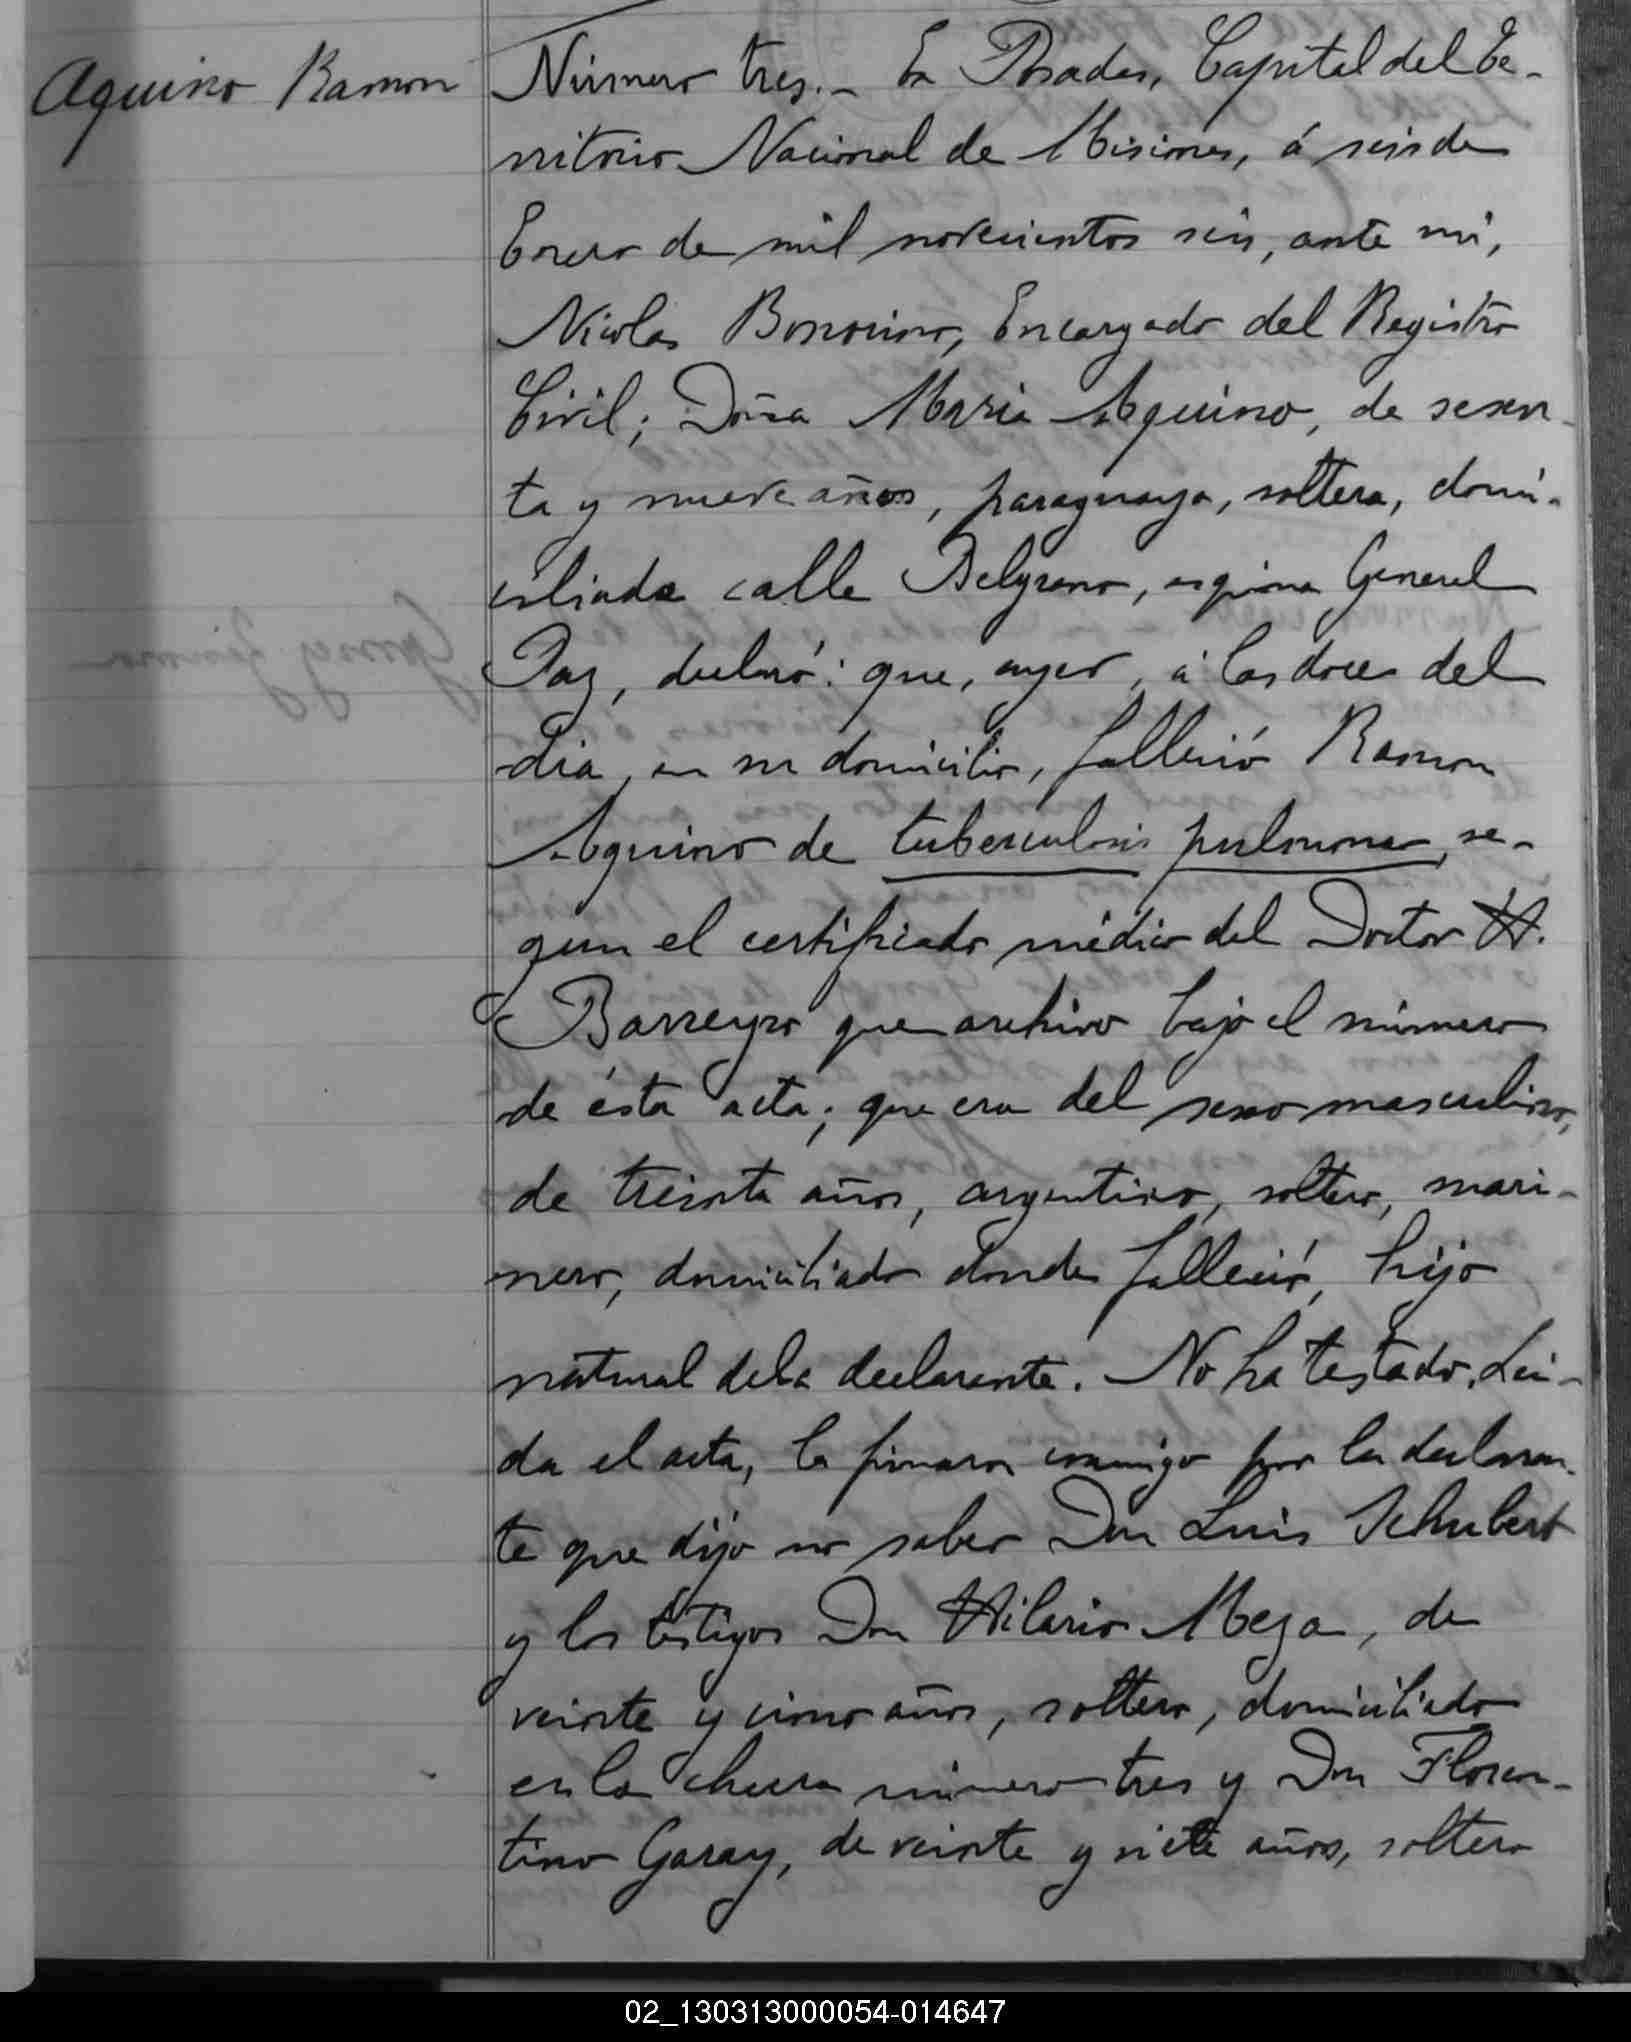 Aquino Ramon
Número tres.- En Posadas, Capital del Te-
rritorio Nacional de Misiones, á seis de
Enero de mil novecientos seis, ante mi,
Nicolas Bonorino, Encargado del Registro
Civil; Doña Maria Aquino, de sesen-
ta y nueve años, paraguaya, soltera, domi-
ciliada calle Belgrano, esquina General
Paz, declaró: que, ayer, á las doce del
dia, en su domicilio, falleció Ramon
Aquino de tuberculosis pulmonar, se-
gun el certificado médico del Doctor H.
Barreyro que archivo bajo el número
de ésta acta; que era del sexo masculino,
de treinta años, argentino, soltero, mari-
nero, domiciliado donde falleció, hijo
natural de la declarante. No ha testado. Lei-
da el acta, la firmaron conmigo por la declaran-
te que dijo no saber Don Luis Schubert
y los testigos Don Hilario Meza, de
veinte y cinco años, soltero, domiciliado
en la chacra número tres y Don Floren-
tino Garay, de veinte y siete años, soltero
02_130313000054-014647